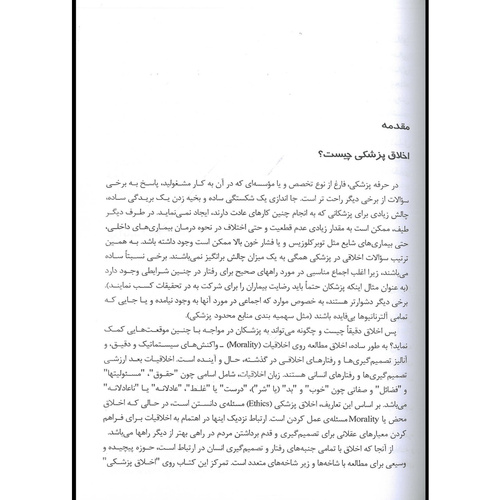 مقدمه
اخلاق پزشکی چیست؟
در حرفه پزشکی، فارغ از نوع تخصص و یا مؤسسه‌ای که در آن به کار مشغولید، پاسخ به برخی
سؤالات از برخی دیگر راحت تر است. جا اندازی یک شکستگی ساده و بخیه زدن یک بریدگی ساده،
چالش زیادی برای پزشکانی که به انجام چنین کارهای عادت دارند، ایجاد نمی‌نماید. در طرف دیگر
طیف، ممکن است به مقدار زیادی عدم قطعیت و حتی اختلاف در نحوه درمان بیماری‌های داخلی،
حتی بیماری‌های شایع مثل توبرکلوزیس و یا فشار خون بالا ممکن است وجود داشته باشد. به همین
ترتیب سؤالات اخلاقی در پزشکی همگی به یک میزان چالش برانگیز نمی‌باشند. برخی نسبتاً ساده
می‌باشند، زیرا اغلب اجماع مناسبی در مورد راههای صحیح برای رفتار در چنین شرایطی وجود دارد
(به عنوان مثال اینکه پزشکان حتماً باید رضایت بیماران را برای شرکت به در تحقیقات کسب نمایند).
برخی دیگر دشوارتر هستند، به خصوص موارد که اجماعی در مورد آنها به وجود نیامده و یا جایی که
تمامی آلترناتیوها بی‌فایده باشند (مثل سهمیه بندی منابع محدود پزشکی).
پس اخلاق دقیقاً چیست و چگونه می‌تواند به پزشکان در مواجهه با چنین موقعیت‌هایی کمک
نماید؟ به طور ساده، اخلاق مطالعه روی اخلاقیات (Morality) ـ واکنش‌های سیستماتیک و دقیق، و
آنالیز تصمیم‌گیری‌ها و رفتارهای اخلاقی در گذشته، حال و آینده است. اخلاقیات بعد ارزشی
تصمیم‌گیری‌ها و رفتارهای انسانی هستند. زبان اخلاقیات، شامل اسامی چون "حقوق"، "مسئولیتها"
و "فضائل" و صفاتی چون "خوب" و "بد" (یا "شر")، "درست" یا "غلط"، "عادلانه" یا "ناعادلانه"
می‌باشد. بر اساس این تعاریف، اخلاق پزشکی (Ethics) مسئله‌ی دانستن است، در حالی که اخلاق
محض یا Morality مسئله‌ی عمل کردن است. ارتباط نزدیک اینها در اهتمام به اخلاقیات برای فراهم
کردن معیارهای عقلانی برای تصمیم‌گیری و قدم برداشتن مردم در راهی بهتر از دیگر راهها می‌باشد.
از آنجا که اخلاق با تمامی جنبه‌های رفتار و تصمیم‌گیری انسان در ارتباط است، حوزه پیچیده و
وسیعی برای مطالعه با شاخه‌ها و زیر شاخه‌های متعدد است. تمرکز این کتاب روی "اخلاق پزشکی"